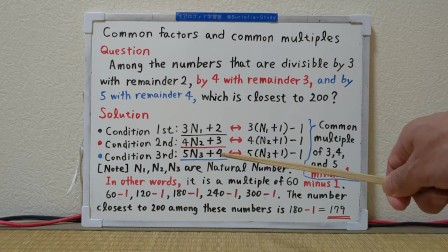 Common factors and common multiples
Question
Among the numbers that are divisible by 3
with remainder 2, by 4 with remainder 3, and by
5 with remainder 4, which is closest to 200?
Solution
• Condition 1st: 3N₁+2 ↔ 3(N₁+1)-1
• Condition 2nd: 4N₂+3 ↔ 4(N₂+1)-1
• Condition 3rd: 5N₃+4 ↔ 5(N₃+1)-1
Common
multiple
of 3,4,
and 5
minus 1.
[Note] N₁, N₂, N₃ are Natural Number.
In other words, it is a multiple of 60
60-1, 120-1, 180-1, 240-1, 300-1. The number
closest to 200 among these numbers is 180-1=179